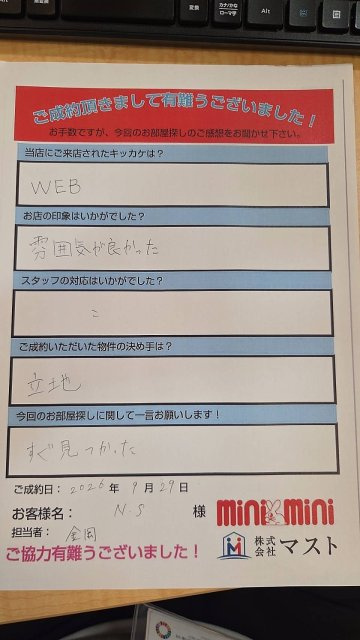 ご成約頂きまして有難うございました！
お手数ですが、今回のお部屋探しのご感想をお聞かせ下さい。
当店にご来店されたキッカケは？
WEB
お店の印象はいかがでした？
雰囲気が良かった
スタッフの対応はいかがでした？
ご成約いただいた物件の決め手は？
立地
今回のお部屋探しに関して一言お願いします！
すぐ見つかった
ご成約日： 2026 年 9 月 29 日
お客様名： N.S 様
担当者： 金岡
mini mini
株式会社 マスト
ご協力有難うございました！
変換
カナ/かな
ローマ字
Alt
Alt